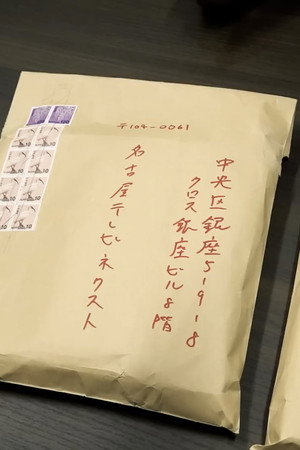 〒104-0061
中央区銀座5-9-8
クロス銀座ビル8階
名古屋テレビネクスト